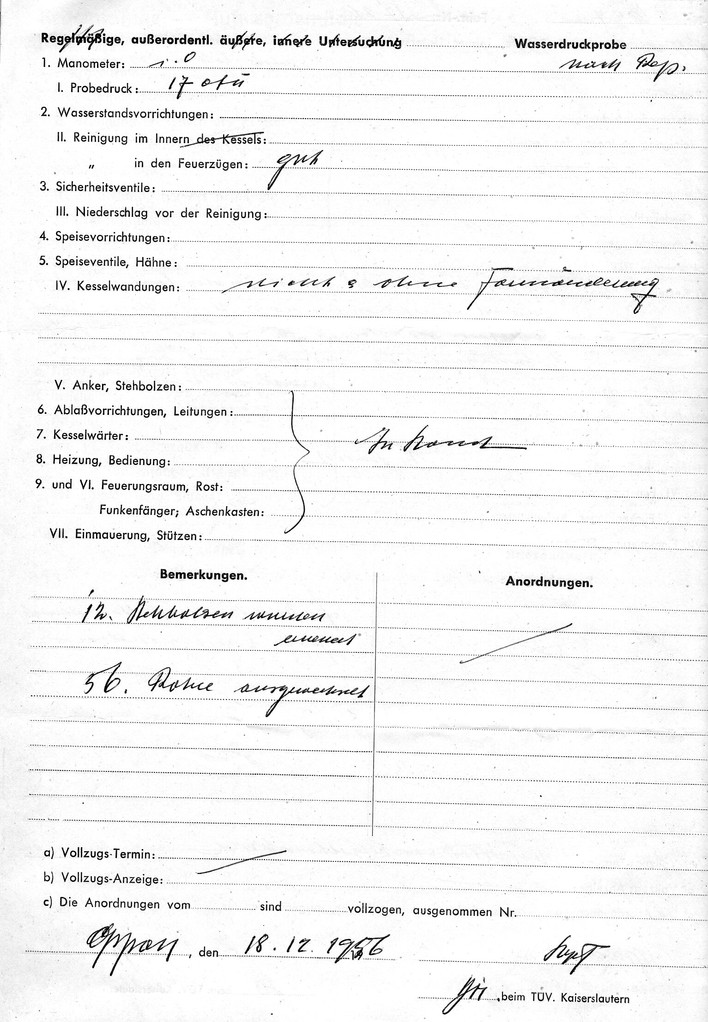 Regelmäßige, außerordentl. äußere, innere Untersuchung Wasserdruckprobe
1. Manometer: i. O nach Rep.
I. Probedruck: 17 atü
2. Wasserstandsvorrichtungen:
II. Reinigung im Innern des Kessels:
„ in den Feuerzügen: gut
3. Sicherheitsventile:
III. Niederschlag vor der Reinigung:
4. Speisevorrichtungen:
5. Speiseventile, Hähne:
IV. Kesselwandungen: dicht & ohne Formänderung
V. Anker, Stehbolzen:
6. Ablaßvorrichtungen, Leitungen:
7. Kesselwärter: In Stand
8. Heizung, Bedienung:
9. und VI. Feuerungsraum, Rost:
Funkenfänger; Aschenkasten:
VII. Einmauerung, Stützen:
Bemerkungen. Anordnungen.
12. Stehbolzen wurden
erneuert
56. Rohre ausgewechselt
a) Vollzugs-Termin:
b) Vollzugs-Anzeige:
c) Die Anordnungen vom sind vollzogen, ausgenommen Nr.
Oppau, den 18.12.1956
beim TÜV. Kaiserslautern